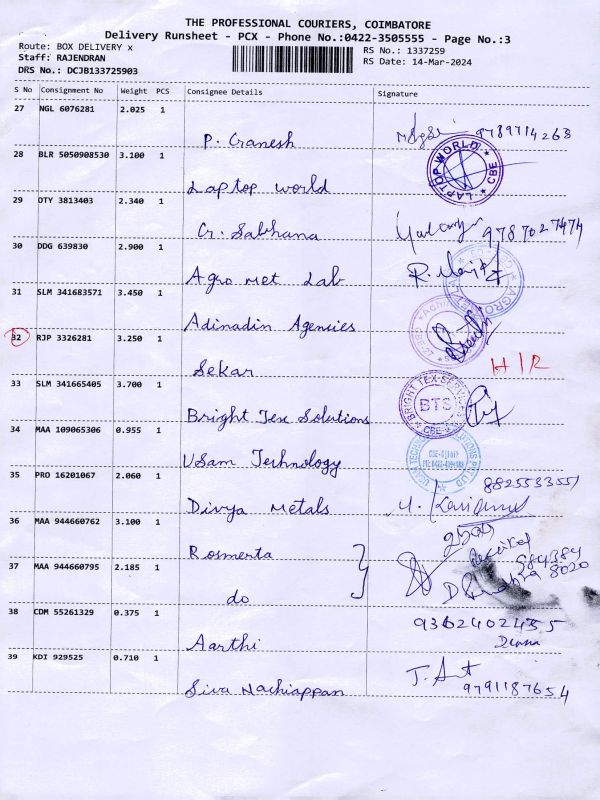 THE PROFESSIONAL COURIERS, COIMBATORE
Delivery Runsheet - PCX - Phone No.:0422-3505555 - Page No.:3
Route: BOX DELIVERY x RS No.: 1337259
Staff: RAJENDRAN RS Date: 14-Mar-2024
DRS No.: DCJB133725903
S No Consignment No Weight PCS Consignee Details Signature
27 NGL 6076281 2.025 1
P. Ganesh 9789714263
28 BLR 5050908530 3.100 1
LAPTOP WORLD CBE
Laptop world
29 OTY 3813403 2.340 1
G. Sabhana 9787027474
30 DDG 639830 2.900 1
Agro met Lab
31 SLM 341683571 3.450 1
Adinadin Agencies
32 RJP 3326281 3.250 1
Sekar H/R
33 SLM 341665405 3.700 1
BRIGHT TEX BTS CBE
Bright Tex Solutions
34 MAA 109065306 0.955 1
USam Technology
35 PRO 16201067 2.060 1
8825533551
Divya Metals
36 MAA 944660762 3.100 1
Rosmerta
37 MAA 944660795 2.185 1
do
38 CDM 55261329 0.375 1
9362402435
Aarthi
39 KDI 929525 0.710 1
Siva Nachiappan 9791187654